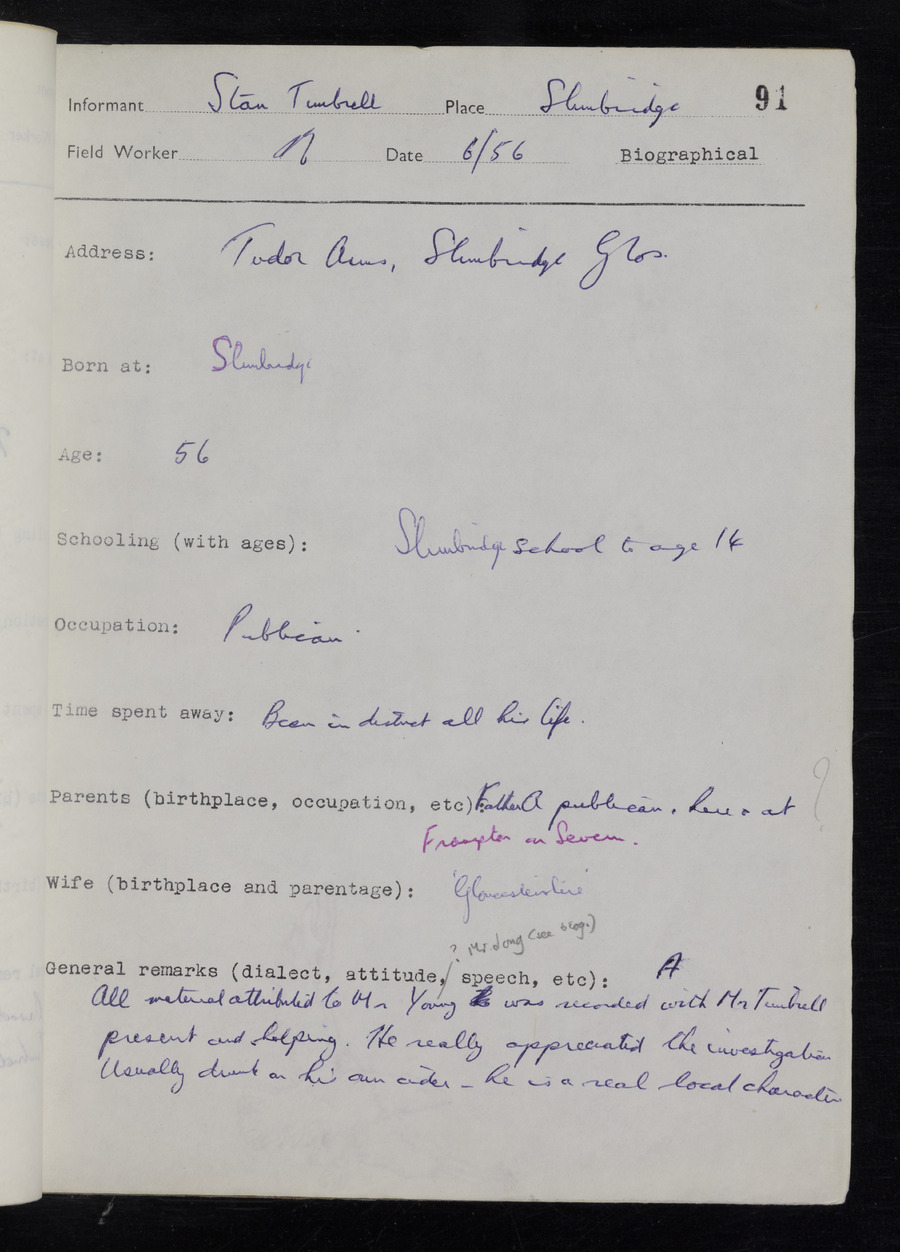 Informant Stan Timbrell Place Slimbridge 91
Field Worker Date 6/56 Biographical
Address: Tudor Arms, Slimbridge Glos.
Born at: Slimbridge
Age: 56
Schooling (with ages): Slimbridge school to age 14
Occupation: Publican
Time spent away: Been in district all his life.
Parents (birthplace, occupation, etc): Father A publican, here & at ?
Frampton on Severn.
Wife (birthplace and parentage): 'Gloucestershire'
? Mr Long (see biog.)
General remarks (dialect, attitude, speech, etc): A
All material attributed to Mr Young was recorded with Mr Timbrell
present and helping. He really appreciated the investigation
Usually drunk on his own cider - he is a real local character